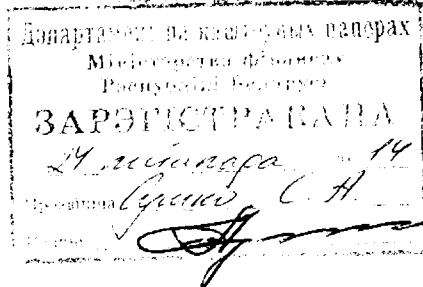 Дэпартамент па каштоўных паперах
Міністэрства фінансаў
Рэспублікі Беларусь
ЗАРЭГІСТРАВАНА
24 лістапада 14
Сушко С. А.